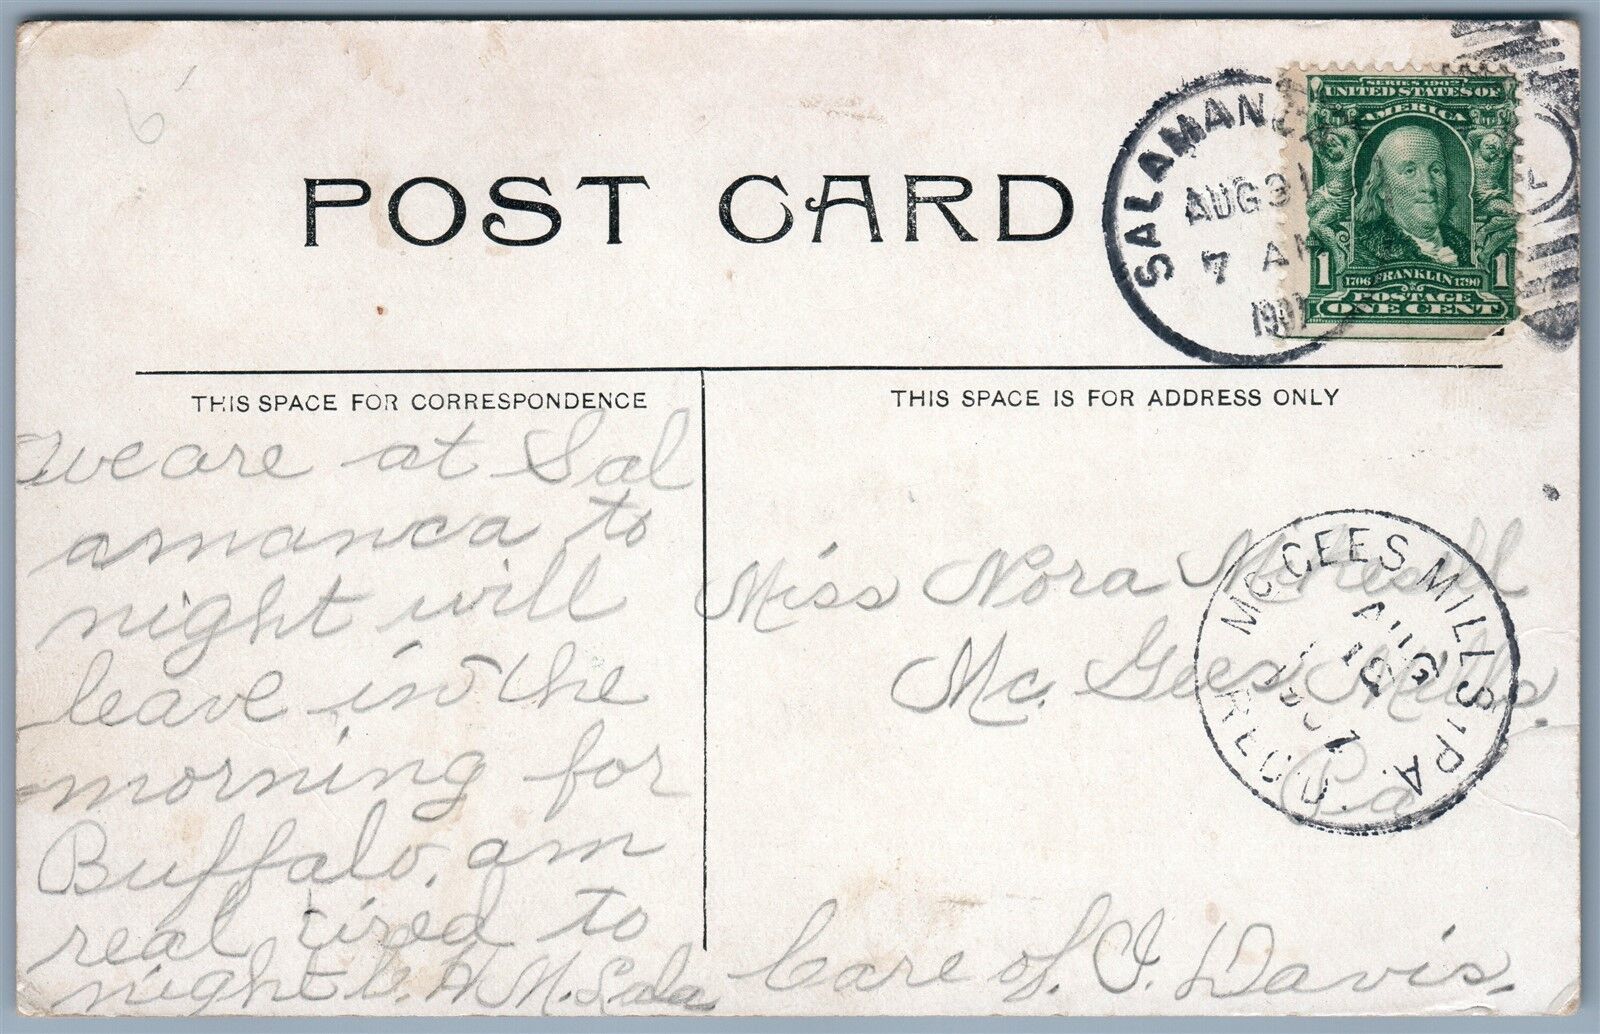 6
POST CARD
SALAMANCA
AUG 31
7 AM
1907
SERIES 1902
UNITED STATES OF
AMERICA
1 1706 FRANKLIN 1790 1
POSTAGE
ONE CENT
THIS SPACE FOR CORRESPONDENCE
THIS SPACE IS FOR ADDRESS ONLY
we are at Sal
amanca to
night will
leave in the
morning for
Buffalo, am
real tired to
night
Miss Nora
Mc. Gees Mills.
Pa
Care of J. Davis.
MCGEES MILLS, PA.
AUG
1907
REC'D.